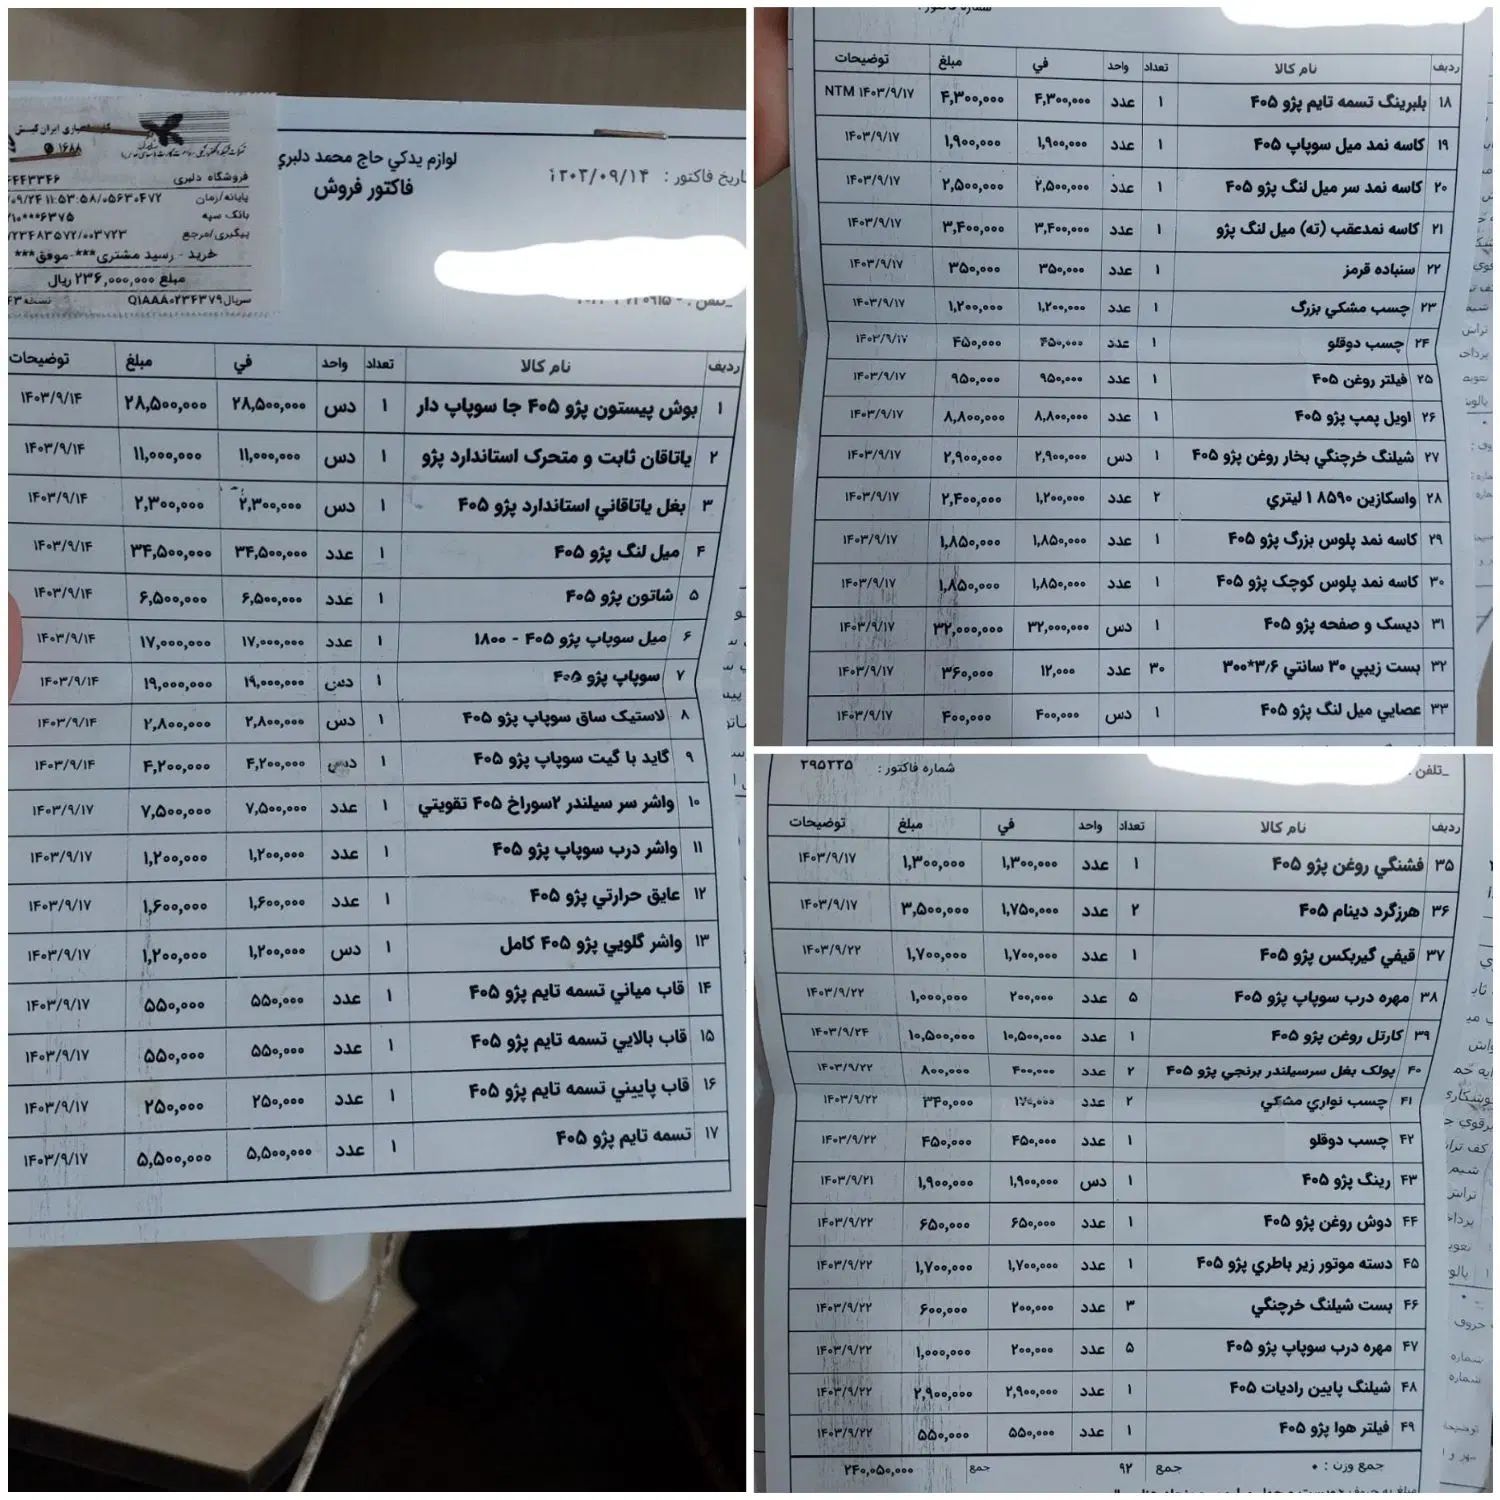 ۱۶۸۸
فروشگاه دلبری
پایانه/زمان ۱۱:۵۳:۵۸/۰۵۶۳۰۴۷۲
بانک سپه
پیگیری/مرجع
خرید - رسید مشتری***-موفق***
مبلغ ۲۳۶,۰۰۰,۰۰۰ ریال
سریال Q1AAA۰۲۳۴۳۷۹
لوازم يدكي حاج محمد دلبري
فاکتور فروش
تاریخ فاکتور : ۱۴۰۳/۰۹/۱۴
ردیف نام کالا تعداد واحد في مبلغ توضیحات
۱ بوش پیستون پژو ۴۰۵ جا سوپاپ دار ۱ دس ۲۸,۵۰۰,۰۰۰ ۲۸,۵۰۰,۰۰۰ ۱۴۰۳/۹/۱۴
۲ یاتاقان ثابت و متحرک استاندارد پژو ۱ دس ۱۱,۰۰۰,۰۰۰ ۱۱,۰۰۰,۰۰۰ ۱۴۰۳/۹/۱۴
۳ بغل یاتاقاني استاندارد پژو ۴۰۵ ۱ دس ۲,۳۰۰,۰۰۰ ۲,۳۰۰,۰۰۰ ۱۴۰۳/۹/۱۴
۴ میل لنگ پژو ۴۰۵ ۱ عدد ۳۴,۵۰۰,۰۰۰ ۳۴,۵۰۰,۰۰۰ ۱۴۰۳/۹/۱۴
۵ شاتون پژو ۴۰۵ ۱ عدد ۶,۵۰۰,۰۰۰ ۶,۵۰۰,۰۰۰ ۱۴۰۳/۹/۱۴
۶ میل سوپاپ پژو ۴۰۵ - ۱۸۰۰ ۱ عدد ۱۷,۰۰۰,۰۰۰ ۱۷,۰۰۰,۰۰۰ ۱۴۰۳/۹/۱۴
۷ سوپاپ پژو ۴۰۵ ۱ دس ۱۹,۰۰۰,۰۰۰ ۱۹,۰۰۰,۰۰۰ ۱۴۰۳/۹/۱۴
۸ لاستیک ساق سوپاپ پژو ۴۰۵ ۱ دس ۲,۸۰۰,۰۰۰ ۲,۸۰۰,۰۰۰ ۱۴۰۳/۹/۱۴
۹ گاید با گیت سوپاپ پژو ۴۰۵ ۱ دس ۴,۲۰۰,۰۰۰ ۴,۲۰۰,۰۰۰ ۱۴۰۳/۹/۱۴
۱۰ واشر سر سیلندر ۲سوراخ ۴۰۵ تقویتي ۱ عدد ۷,۵۰۰,۰۰۰ ۷,۵۰۰,۰۰۰ ۱۴۰۳/۹/۱۷
۱۱ واشر درب سوپاپ پژو ۴۰۵ ۱ عدد ۱,۲۰۰,۰۰۰ ۱,۲۰۰,۰۰۰ ۱۴۰۳/۹/۱۷
۱۲ عایق حرارتي پژو ۴۰۵ ۱ عدد ۱,۶۰۰,۰۰۰ ۱,۶۰۰,۰۰۰ ۱۴۰۳/۹/۱۷
۱۳ واشر گلویي پژو ۴۰۵ کامل ۱ دس ۱,۲۰۰,۰۰۰ ۱,۲۰۰,۰۰۰ ۱۴۰۳/۹/۱۷
۱۴ قاب میاني تسمه تایم پژو ۴۰۵ ۱ عدد ۵۵۰,۰۰۰ ۵۵۰,۰۰۰ ۱۴۰۳/۹/۱۷
۱۵ قاب بالایي تسمه تایم پژو ۴۰۵ ۱ عدد ۵۵۰,۰۰۰ ۵۵۰,۰۰۰ ۱۴۰۳/۹/۱۷
۱۶ قاب پاییني تسمه تایم پژو ۴۰۵ ۱ عدد ۲۵۰,۰۰۰ ۲۵۰,۰۰۰ ۱۴۰۳/۹/۱۷
۱۷ تسمه تایم پژو ۴۰۵ ۱ عدد ۵,۵۰۰,۰۰۰ ۵,۵۰۰,۰۰۰ ۱۴۰۳/۹/۱۷
شماره فاکتور :
ردیف نام کالا تعداد واحد في مبلغ توضیحات
۱۸ بلبرینگ تسمه تایم پژو ۴۰۵ ۱ عدد ۴,۳۰۰,۰۰۰ ۴,۳۰۰,۰۰۰ NTM ۱۴۰۳/۹/۱۷
۱۹ کاسه نمد میل سوپاپ ۴۰۵ ۱ عدد ۱,۹۰۰,۰۰۰ ۱,۹۰۰,۰۰۰ ۱۴۰۳/۹/۱۷
۲۰ کاسه نمد سر میل لنگ پژو ۴۰۵ ۱ عدد ۲,۵۰۰,۰۰۰ ۲,۵۰۰,۰۰۰ ۱۴۰۳/۹/۱۷
۲۱ کاسه نمدعقب (ته) میل لنگ پژو ۱ عدد ۳,۴۰۰,۰۰۰ ۳,۴۰۰,۰۰۰ ۱۴۰۳/۹/۱۷
۲۲ سنباده قرمز ۱ عدد ۳۵۰,۰۰۰ ۳۵۰,۰۰۰ ۱۴۰۳/۹/۱۷
۲۳ چسب مشکي بزرگ ۱ عدد ۱,۲۰۰,۰۰۰ ۱,۲۰۰,۰۰۰ ۱۴۰۳/۹/۱۷
۲۴ چسب دوقلو ۱ عدد ۴۵۰,۰۰۰ ۴۵۰,۰۰۰ ۱۴۰۳/۹/۱۷
۲۵ فیلتر روغن ۴۰۵ ۱ عدد ۹۵۰,۰۰۰ ۹۵۰,۰۰۰ ۱۴۰۳/۹/۱۷
۲۶ اویل پمپ پژو ۴۰۵ ۱ عدد ۸,۸۰۰,۰۰۰ ۸,۸۰۰,۰۰۰ ۱۴۰۳/۹/۱۷
۲۷ شیلنگ خرچنگي بخار روغن پژو ۴۰۵ ۱ دس ۲,۹۰۰,۰۰۰ ۲,۹۰۰,۰۰۰ ۱۴۰۳/۹/۱۷
۲۸ واسکازین ۸۵۹۰ ۱ لیتري ۲ عدد ۱,۲۰۰,۰۰۰ ۲,۴۰۰,۰۰۰ ۱۴۰۳/۹/۱۷
۲۹ کاسه نمد پلوس بزرگ پژو ۴۰۵ ۱ عدد ۱,۸۵۰,۰۰۰ ۱,۸۵۰,۰۰۰ ۱۴۰۳/۹/۱۷
۳۰ کاسه نمد پلوس کوچک پژو ۴۰۵ ۱ عدد ۱,۸۵۰,۰۰۰ ۱,۸۵۰,۰۰۰ ۱۴۰۳/۹/۱۷
۳۱ دیسک و صفحه پژو ۴۰۵ ۱ دس ۳۲,۰۰۰,۰۰۰ ۳۲,۰۰۰,۰۰۰ ۱۴۰۳/۹/۱۷
۳۲ بست زیپي ۳۰ سانتي ۳/۶*۳۰۰ ۳۰ عدد ۱۲,۰۰۰ ۳۶۰,۰۰۰ ۱۴۰۳/۹/۱۷
۳۳ عصایي میل لنگ پژو ۴۰۵ ۱ دس ۴۰۰,۰۰۰ ۴۰۰,۰۰۰ ۱۴۰۳/۹/۱۷
تلفن : شماره فاکتور : ۲۹۵۲۲۵
ردیف نام کالا تعداد واحد في مبلغ توضیحات
۳۵ فشنگي روغن پژو ۴۰۵ ۱ عدد ۱,۳۰۰,۰۰۰ ۱,۳۰۰,۰۰۰ ۱۴۰۳/۹/۱۷
۳۶ هرزگرد دینام ۴۰۵ ۲ عدد ۱,۷۵۰,۰۰۰ ۳,۵۰۰,۰۰۰ ۱۴۰۳/۹/۱۷
۳۷ قیفي گیربکس پژو ۴۰۵ ۱ عدد ۱,۷۰۰,۰۰۰ ۱,۷۰۰,۰۰۰ ۱۴۰۳/۹/۲۲
۳۸ مهره درب سوپاپ پژو ۴۰۵ ۵ عدد ۲۰۰,۰۰۰ ۱,۰۰۰,۰۰۰ ۱۴۰۳/۹/۲۲
۳۹ کارتل روغن پژو ۴۰۵ ۱ عدد ۱۰,۵۰۰,۰۰۰ ۱۰,۵۰۰,۰۰۰ ۱۴۰۳/۹/۲۴
۴۰ پولک بغل سرسیلندر برنجي پژو ۴۰۵ ۲ عدد ۴۰۰,۰۰۰ ۸۰۰,۰۰۰ ۱۴۰۳/۹/۲۲
۴۱ چسب نواري مشکي ۲ عدد ۱۷۰,۰۰۰ ۳۴۰,۰۰۰ ۱۴۰۳/۹/۲۲
۴۲ چسب دوقلو ۱ عدد ۴۵۰,۰۰۰ ۴۵۰,۰۰۰ ۱۴۰۳/۹/۲۲
۴۳ رینگ پژو ۴۰۵ ۱ دس ۱,۹۰۰,۰۰۰ ۱,۹۰۰,۰۰۰ ۱۴۰۳/۹/۲۱
۴۴ دوش روغن پژو ۴۰۵ ۱ عدد ۶۵۰,۰۰۰ ۶۵۰,۰۰۰ ۱۴۰۳/۹/۲۲
۴۵ دسته موتور زیر باطري پژو ۴۰۵ ۱ عدد ۱,۷۰۰,۰۰۰ ۱,۷۰۰,۰۰۰ ۱۴۰۳/۹/۲۲
۴۶ بست شیلنگ خرچنگي ۳ عدد ۲۰۰,۰۰۰ ۶۰۰,۰۰۰ ۱۴۰۳/۹/۲۲
۴۷ مهره درب سوپاپ پژو ۴۰۵ ۵ عدد ۲۰۰,۰۰۰ ۱,۰۰۰,۰۰۰ ۱۴۰۳/۹/۲۲
۴۸ شیلنگ پایین رادیات ۴۰۵ ۱ عدد ۲,۹۰۰,۰۰۰ ۲,۹۰۰,۰۰۰ ۱۴۰۳/۹/۲۲
۴۹ فیلتر هوا پژو ۴۰۵ ۱ عدد ۵۵۰,۰۰۰ ۵۵۰,۰۰۰ ۱۴۰۳/۹/۲۲
جمع وزن : ۰ جمع ۹۲ جمع ۲۴۰,۰۵۰,۰۰۰